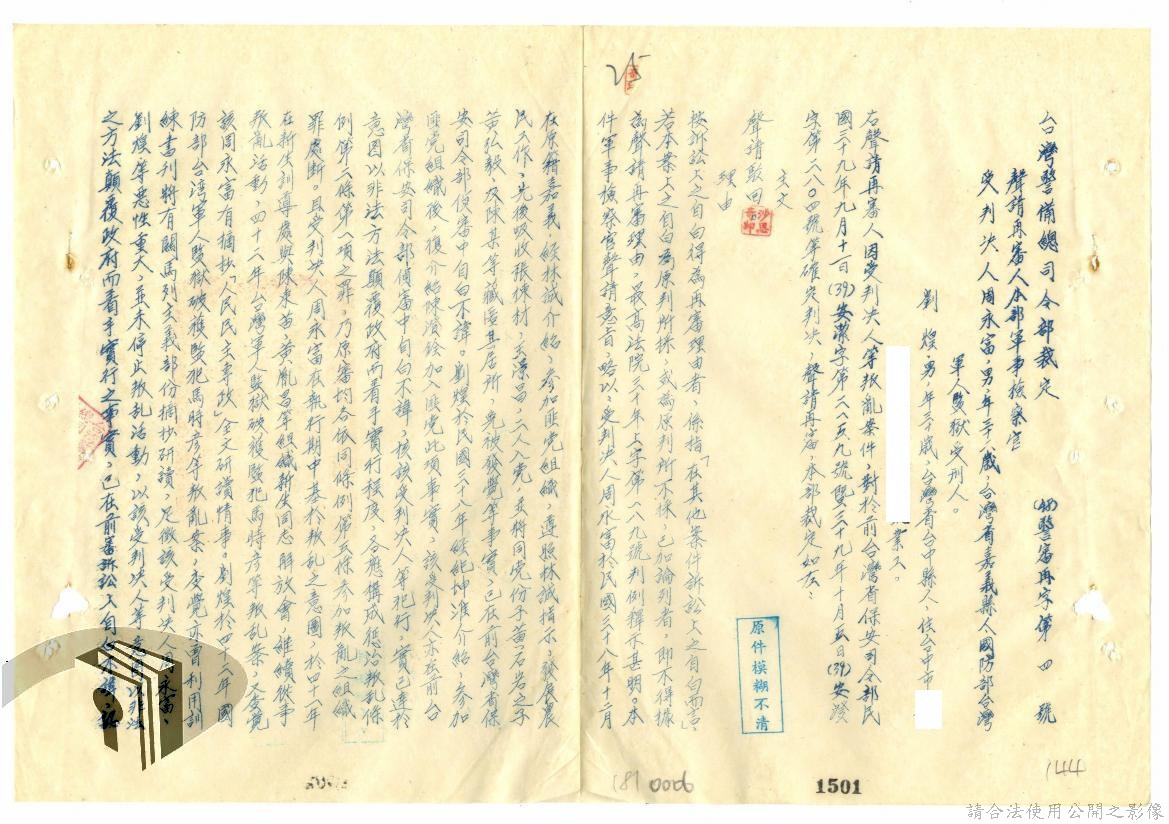 台灣警備總司令部裁定
(45)警審再字第四號
聲請再審人本部軍事檢察官
受判決人周永富,男,年三十八歲,台灣省嘉義縣人國防部台灣
軍人監獄受刑人。
劉煥,男,年三十歲,台灣省台中縣人,住台中市
業工。
右聲請再審人因受判決人等叛亂案件,對於前台灣省保安司令部民
國三十九年九月十一日(39)安潔字第二八五九號暨三十九年十月五日(39)安澄
字第二八〇四號等確定判決,聲請再審,本部裁定如左:
主文
聲請駁回
理由
按訴訟上之自白得為再審理由者,係指「在其他案件訴訟上之自白而言」,
若本案上之自白為原判所採,或為原判所不採,已加論判者,即不得據
為聲請再審理由,最高法院三十年上字第一八九號判例釋示甚明。本
件軍事檢察官聲請意旨,略以:受判決人周永富於民國三十八年十二月
在原籍嘉義,經林誠介紹,參加匪黨組織,遵照林誠指示,發展農
民工作,先後吸收張棟材,二人入黨,又將同黨份子黃石岩之子
黃弘毅及陳某等藏匿其居所,免被發覺等事實,已在前台灣省保
安司令部偵審中自白不諱。劉煥於民國三十八年經坤淮介紹,參加
匪黨組織後,復介紹陳滄加入匪黨此項事實,該受判決人亦在前台
灣省保安司令部偵審中自白不諱,核該受判決人等犯行,實已達於
意圖以非法方法顛覆政府而著手實行程度,各應構成懲治叛亂條
例第二條第一項之罪,乃原審均各依同條例第五條參加叛亂之組織
罪處斷。且受判決人周永富在執行期中基於叛亂之意圖,於四十一年
在新生訓導處與陳来苗、黃胤昌等組織新生同志解放會,繼續從事
叛亂活動,四十二年台灣軍人監獄破獲監犯馬時彥等叛亂案,又發覺
該周永富有摘抄「人民民主專政」全文研讀情事。劉煥於四十二年國
防部台灣軍人監獄破獲監犯馬時彥等叛亂案,查覺亦曾利用訓
練書刊將有關馬列主義部份摘抄研讀,足徵該受判決人周永富、
劉煥等惡性重大,並未停止叛亂活動,以該受判決人等意圖以非法
之方法顛覆政府而著手實行之事實,已在前審訴訟上自白不諱,認
原件模糊不清
1501
181 0006
144
25
請合法使用公開之影像